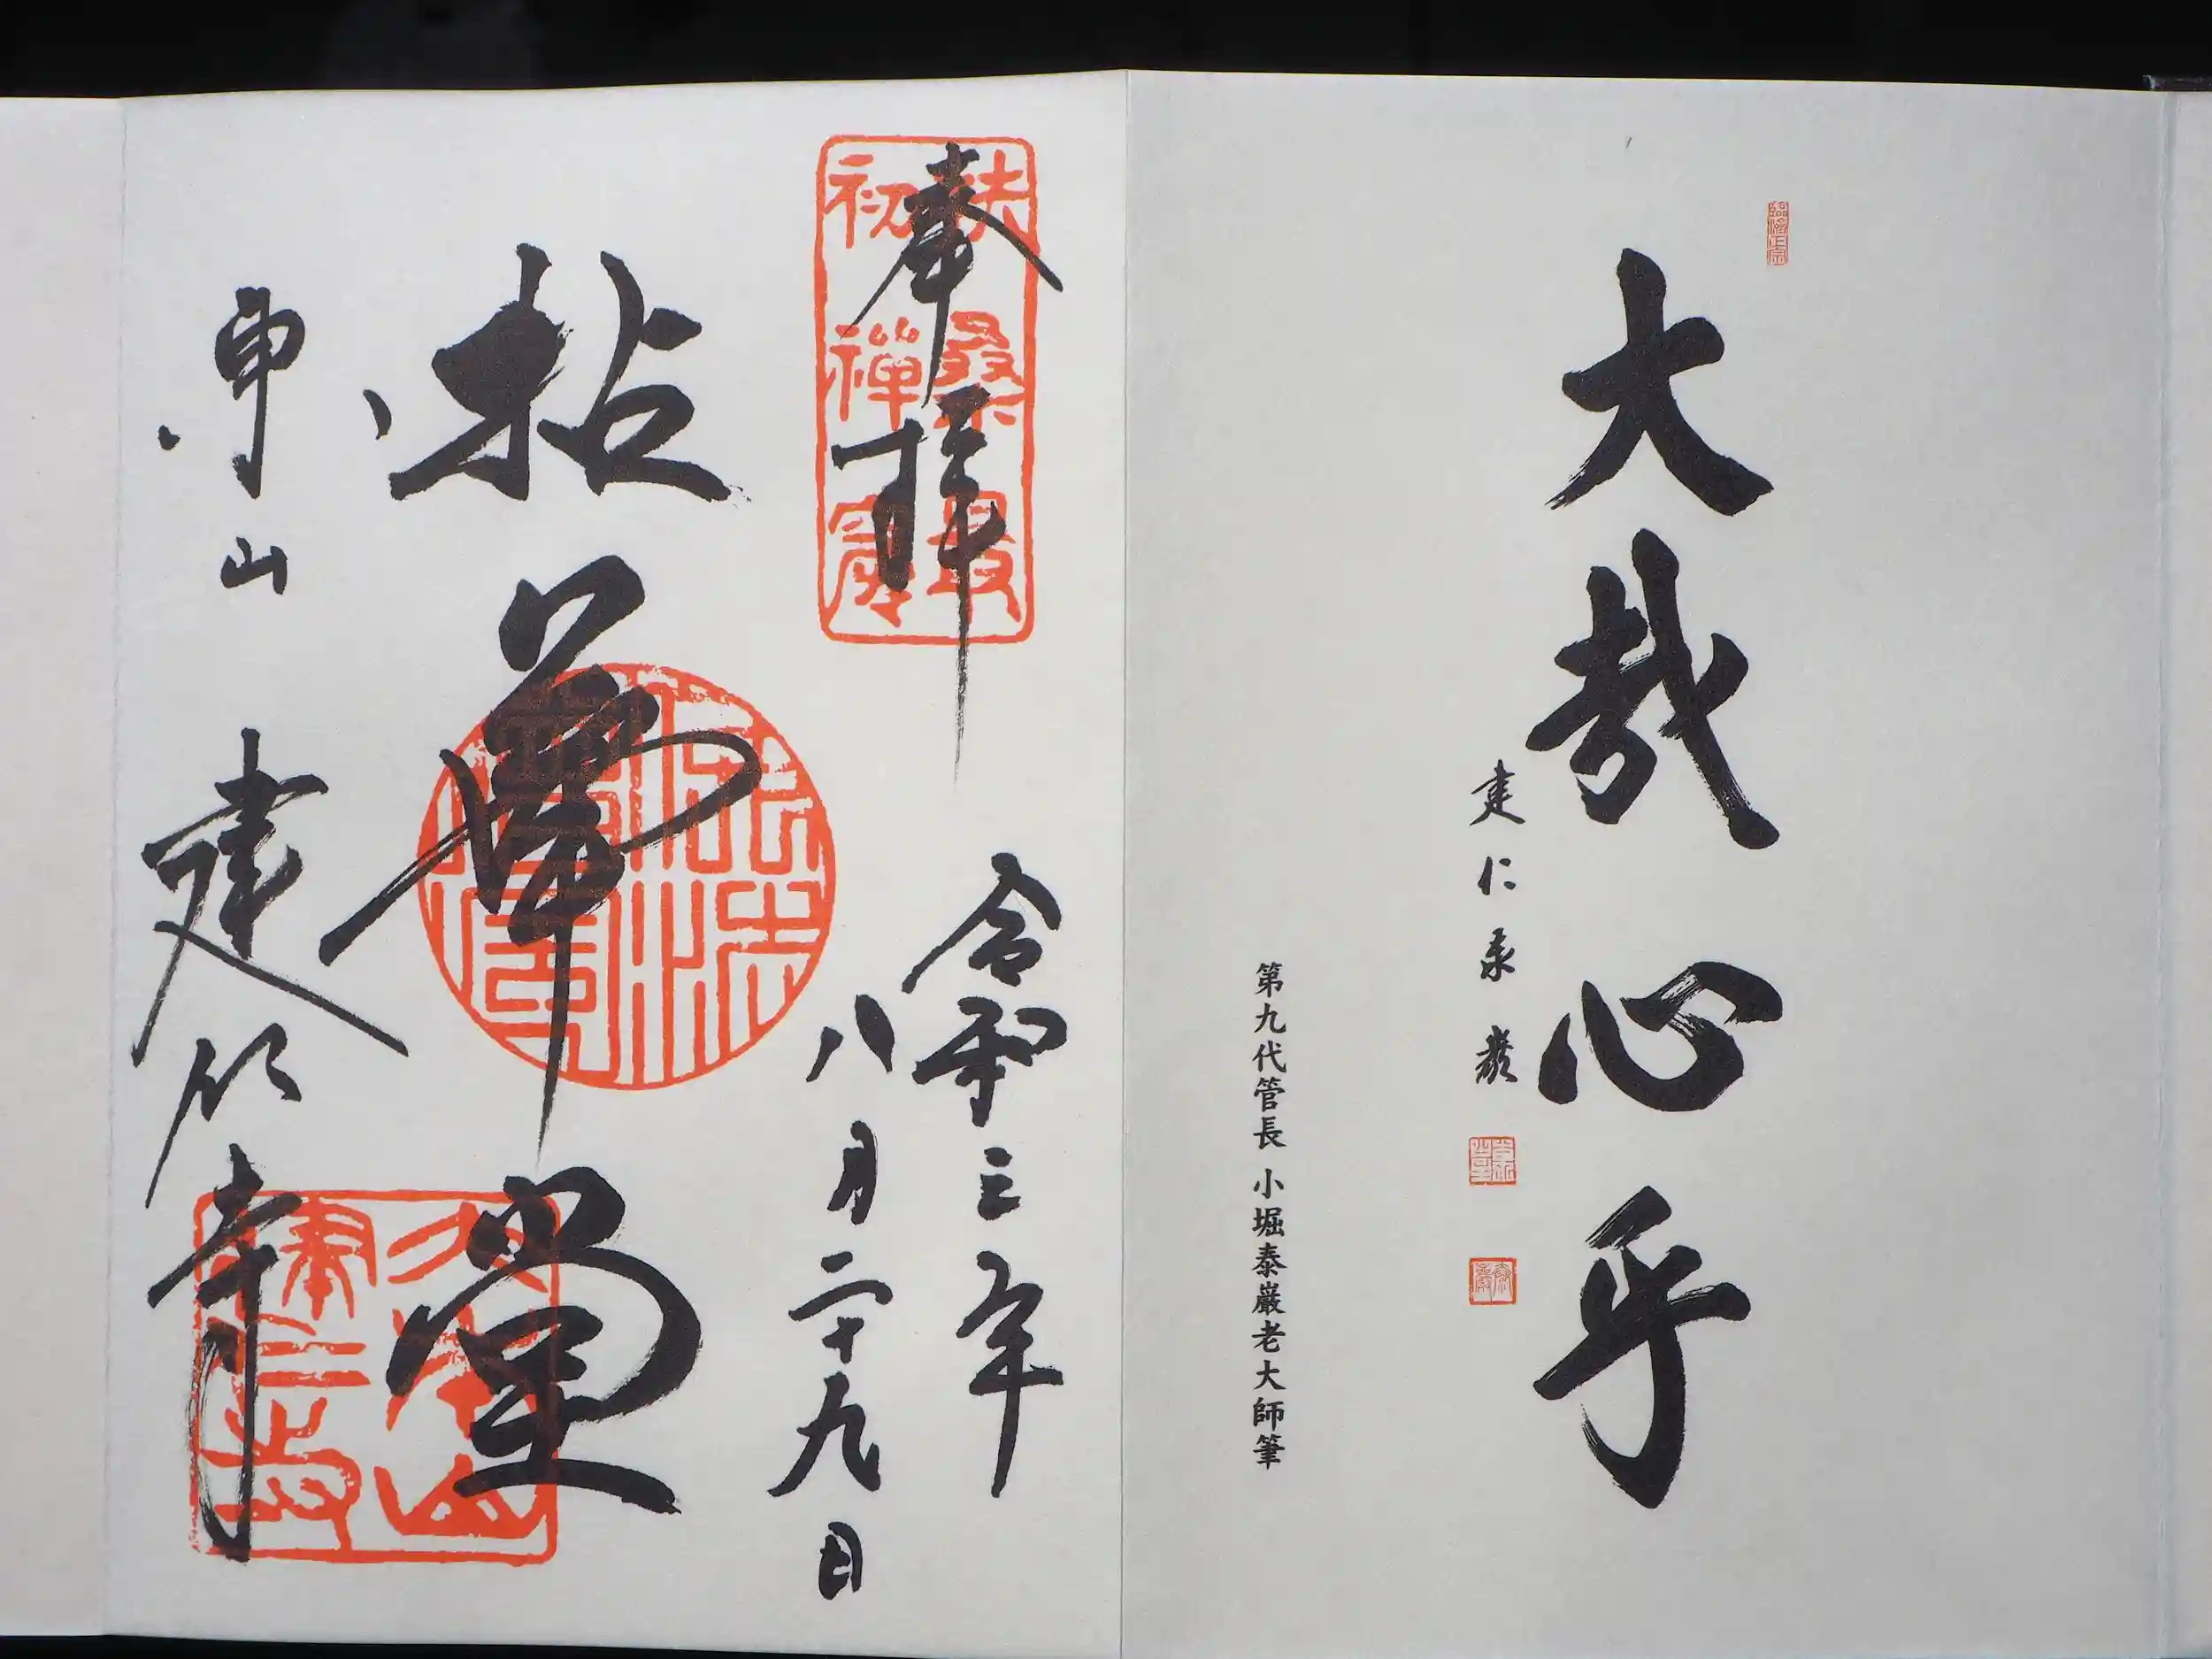 臨済正宗
大哉心乎
建仁泰巌
第九代管長 小堀泰巌老大師筆
奉拝
扶桑最
初禅窟
令和三年
八月二十九日
拈華堂
東山 建仁寺
東山
建仁寺